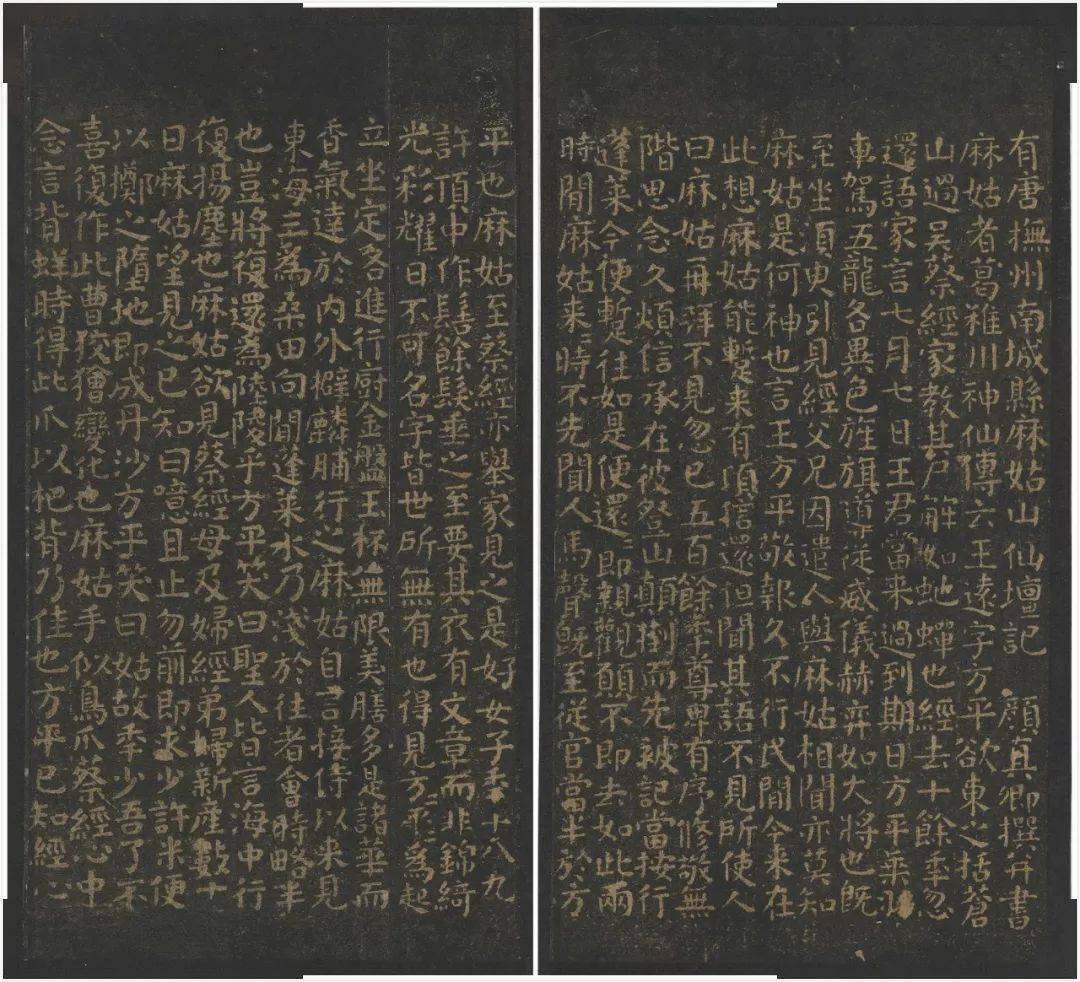 有唐撫州南城縣麻姑山仙壇記 顏真卿撰并書
麻姑者葛稚川神仙傳云王遠字方平欲東之括蒼
山過吳蔡經家教其尸解如虵蟬也經去十餘年忽
還語家言七月七日王君當来過到期日方平乗羽
車駕五龍各異色旌旗導従威儀赫弈如大將也既
至坐須臾引見經父兄因遣人與麻姑相聞亦莫知
麻姑是何神也言王方平敬報久不行民間今来在
此想麻姑能蹔来有頃信還但聞其語不見所使人
曰麻姑再拜不見忽已五百餘年尊卑有序修敬無
階思念久煩信承在彼登山顛倒而先被記當按行
蓬萊今便蹔往如是便還即親觀願不即去如此兩
時間麻姑来時不先聞人馬聲既至從官當半於方
平也麻姑至蔡經亦舉家見之是好女子年十八九
許頂中作髻餘髮垂之至要其衣有文章而非錦綺
光彩耀日不可名字皆世所無有也得見方平為起
立坐定各進行廚金盤玉杯無限美膳多是諸華而
香氣達於内外擗麟脯行之麻姑自言接侍以来見
東海三為桑田向間蓬萊水乃淺於往者會時略半
也豈將復還為陸陵乎方平笑曰聖人皆言海中行
復揚塵也麻姑欲見蔡經母及婦經弟婦新産數十
日麻姑望見之已知曰噫且止勿前即求少許米便
以擲之墮地即成丹沙方平笑曰姑故年少吾了不
喜復作此曹狡獪變化也麻姑手似鳥爪蔡經心中
念言背蛘時得此爪以杷背乃佳也方平已知經心